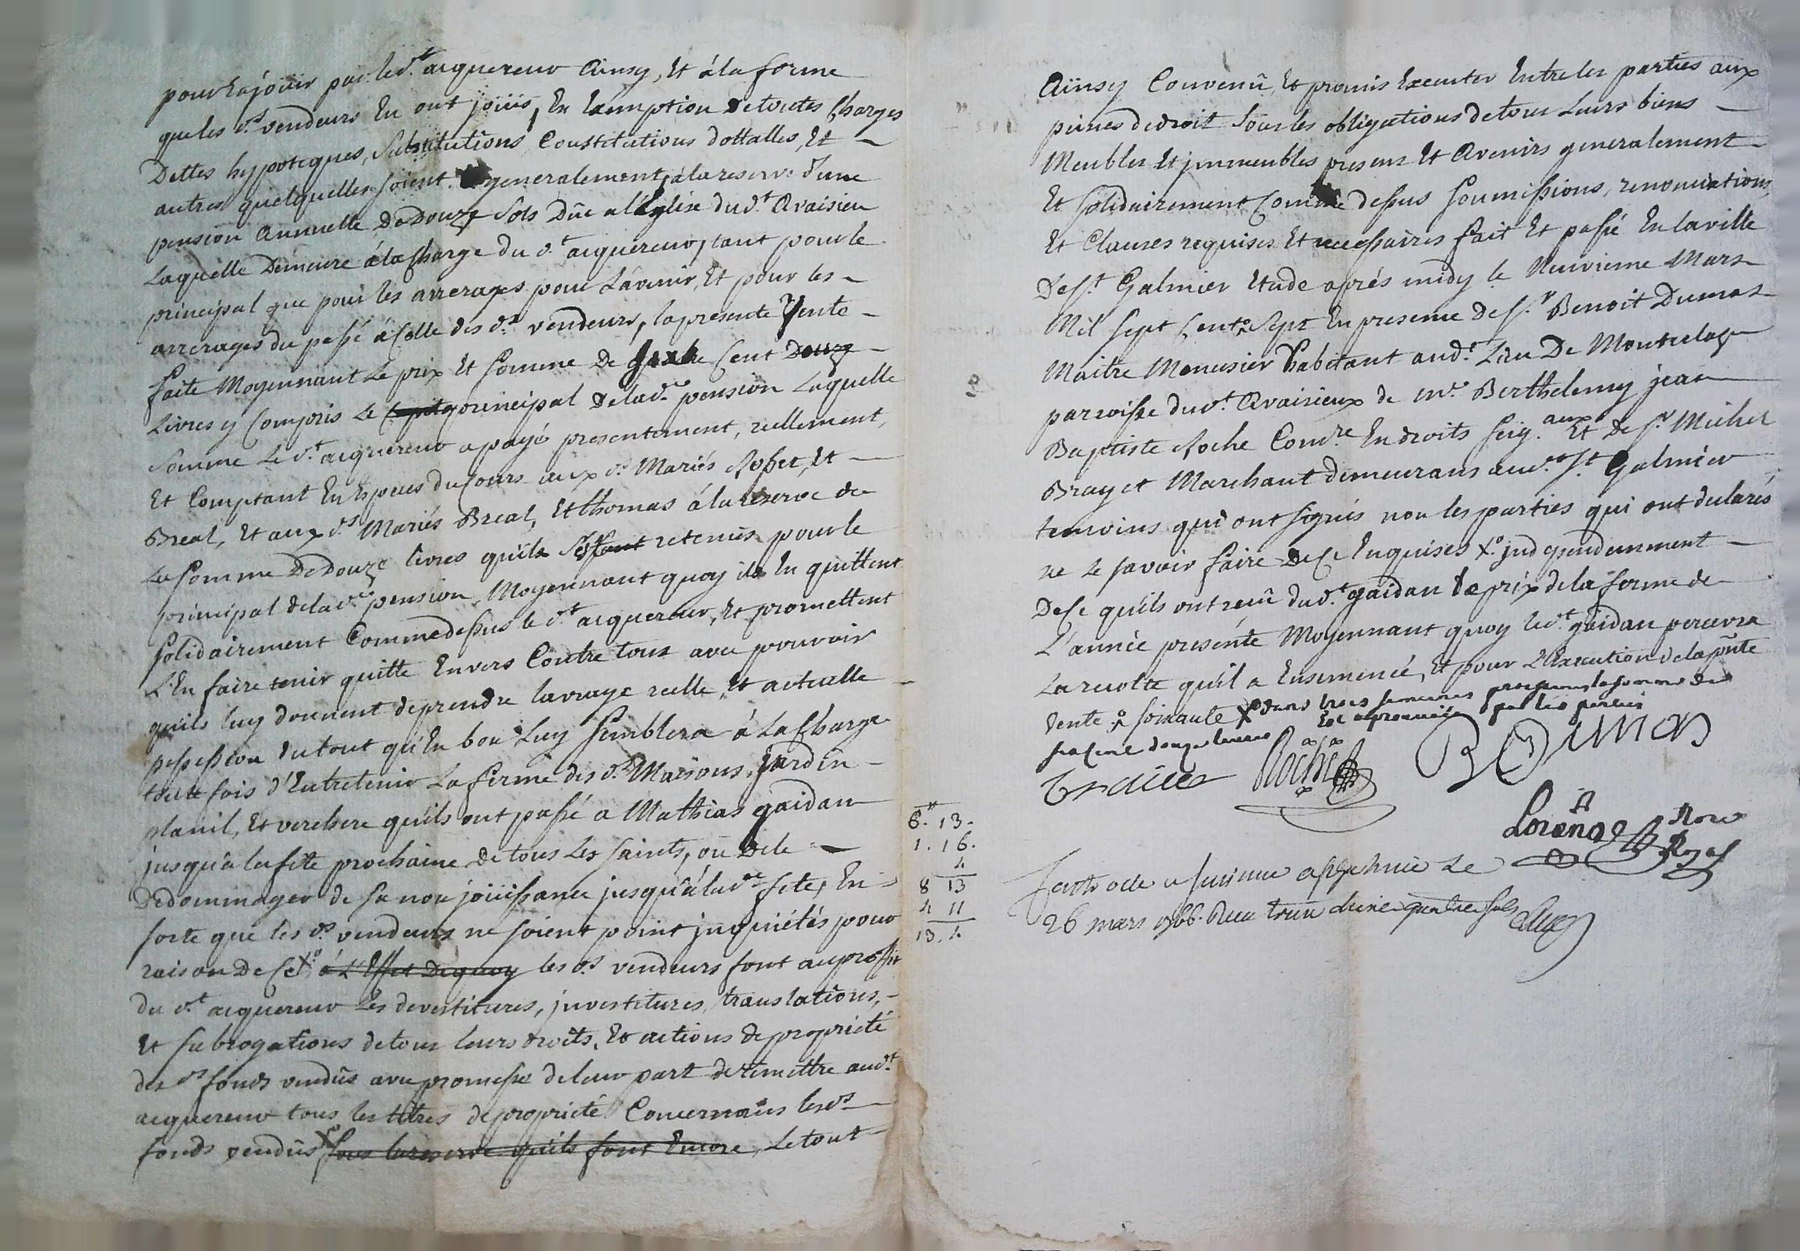 pour En joüir par led.t acquereur Ainsy, Et á la forme
que les d.s vendeurs En ont joüis, En Exemption de toutes Charges
Dettes hypoteques, Substitutions, Constitutions dottalles, Et
autres quelquelles soient generalement, á la reserve d'une
pension Annuelle De Douze Sols Düe a l'Eglise dud.t Avaisieu
Laquelle Demeure á la Charge du d.t acquereur, tant pour le
principal que pour les arrerages pour L'avenir, Et pour les
arrerages du passé á Celle des d.s vendeurs, la presente Vente
faite Moyennant Le prix Et Somme De Cent Douze
Livres y Compris Le principal De lad.e pension Laquelle
Somme Le d.t acquereur a payé presentement, reellement,
Et Comptant En Especes du Cours aux d.s Mariés Et
Breal, Et aux d.s Mariés Breal, Et thomas á la reserve de
La Somme De Douze livres qu'ils retenües pour le
principal de lad.e pension, Moyennant quoy ils En quittent
Solidairement Comme dessus le d.t acquereur, Et promettent
L'En faire tenir quitte Envers Contre tous avec pouvoir
qu'ils luy donnent de prendre la vraye reelle, Et actuelle
possession du tout qu'En bon Luy Semblera á La Charge
toute fois d'Entretenir La ferme des d.s Maisons, Jardin
Et verchere qu'ils ont passé a Mathias gaidan
jusqu'á la fete prochaine de tous Les Saints, oü De le
Dedommager de Sa non joüissance jusqu'á lad.e fete, En
sorte que les d.s vendeurs ne soient point jnquiétés pour
raison De Ce X.o á L'Effet Dequoy les d.s vendeurs font au profit
du d.t acquereur Les devestitures, jnvestitures, translations,
Et Subrogations de tous leurs droits, Et actions de propriété
des d.s fonds vendüs avec promesse de leur part de remettre aud.t
acquereur tous les titres de propriété Concernans les d.s
fonds vendüs X.o Sous la reserve qu'ils font Encore, Le tout
Aïnsy Convenü, Et promis Executer Entre les parties aux
peines de droit Sous les obligations de tous Leurs biens
Meubles Et jmmeubles presens Et Avenirs generalement
Et Solidairement Comme dessus Soumissions, renonciations
Et Clauses requises Et necessaires fait Et passé En la ville
De S.t Galmier Etude aprés midy le Neuvieme Mars
Mil Sept Cents Sept En presence de S.r Benoit Dumas
Maitre Menusier habitant aud.t Lieu De
parroisse dud.t Avaisieux de m.re Berthelemy jean
Baptiste Roche Com.re En droits Seig.aux Et De S.r Michel
Marchant demeurans aud.t S.t Galmier
temoins qui ont signés non les parties qui ont declarés
ne le savoir faire De Ce Enquises X.o jndependemment
De Ce qu'ils ont reçu dud.t gaidan Le prix de la ferme de
L'année presente Moyennant quoy led.t gaidan percevra
La recolte qu'il a Ensemencé, Et pour L'Execution de la pnte
Vente X.o soixante X dans trois semaines prochaines la somme de
Et approuvées par les parties
douze livres
Roche
BDUMAS
Not.re
Royal
6. 13.
1. 16.
4
8 13
4 11
13. 4
26 mars 1766. Reçu treize quatre sols